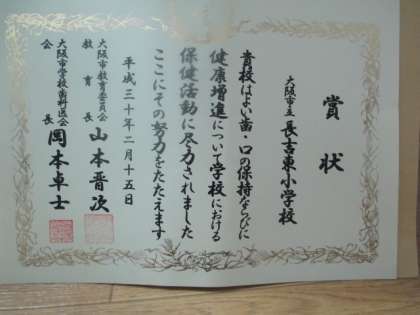 賞状
大阪市立 長吉東小学校
貴校はよい歯・口の保持ならびに
健康増進について学校における
保健活動に尽力されました
ここにその努力をたたえます
平成三十年二月十五日
大阪市教育委員会
教育長 山本晋次
大阪市学校歯科医会
会長 岡本卓士